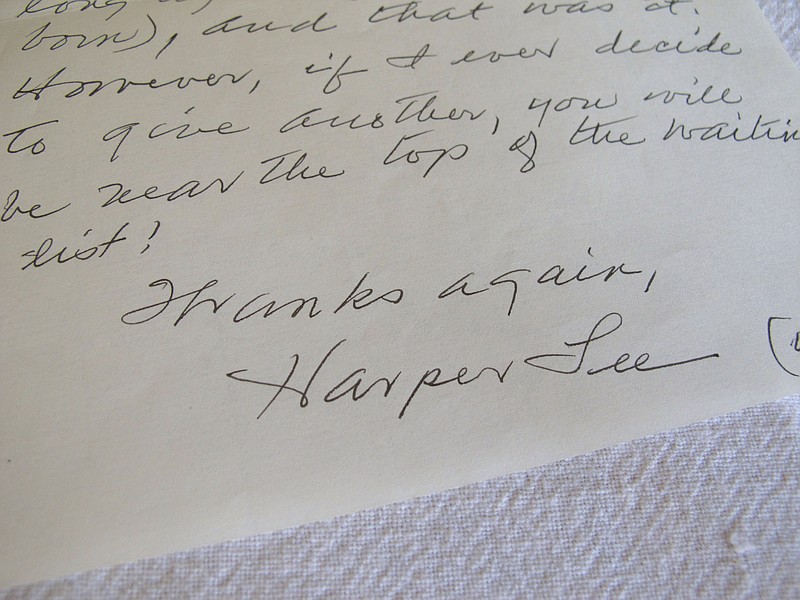 long
born), and that was it.
However, if I ever decide
to give another, you will
be near the top of the waitin
list!
Thanks again,
Harper Lee
(